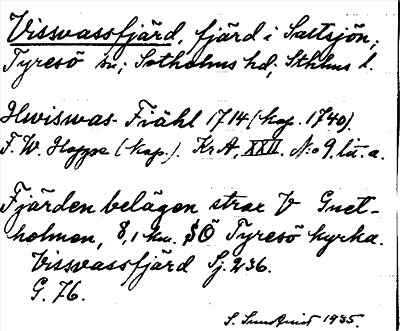 Vissvassfjärd, fjärd i Saltsjön;
Tyresö sn; Sotholms hd; Sthlms l.
Hwiswas-Fiähl 1714 (kop. 1740).
F. W. Hoppe (kop.). KrA, XXII. No 9, lit. a.
Fjärden belägen strax V
holmen, 8,1 km. SÖ Tyresö kyrka.
Vissvassfjärd Sj. 236.
G. 76.
S. 1935.